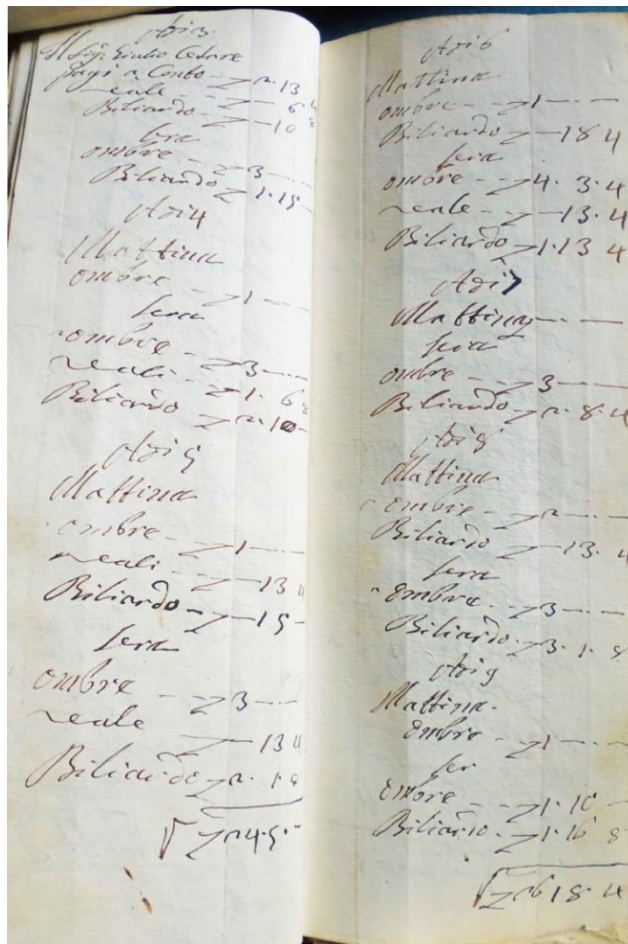 Adi 3
Il Sig: Giulio Cesare
pagi a Conto - £ 2. 13 4
reale - £ - 6 8
Biliardo - £ - 10
sera
ombre - £ 3 - -
Biliardo £ 1. 15 -
Adi 4
Mattina
ombre - £ 1 - -
sera
ombre - £ 3 - -
reali - £ 1. 6
Biliardo £ 2. 10 -
Adi 5
Mattina
ombre - £ 1 - -
reali - £ - 13 4
Biliardo - £ - 15 -
sera
ombre - £ 3 - -
reale £ - 13 4
Biliardo £ 2. 1 8
£ 24. 5. -
Adi 6
Mattina
ombre - £ 1 - -
Biliardo £ - 18 4
sera
ombre - £ 4. 3. 4
reale - £ - 13. 4
Biliardo £ 1. 13 4
Adi 7
Mattina - -
sera
ombre - £ 3 - -
Biliardo - £ 2. 8. 4
Adi 8
Mattina
ombre - £ 2 - -
Biliardo - £ - 13. 4
sera
ombre - £ 3 - -
Biliardo. £ 3. 1. 8
Adi 9
Mattina.
ombre - £ 1 - -
ser
ombre - £ 1. 10 -
Biliardo. £ 1. 16 8
£ 26 18. 4